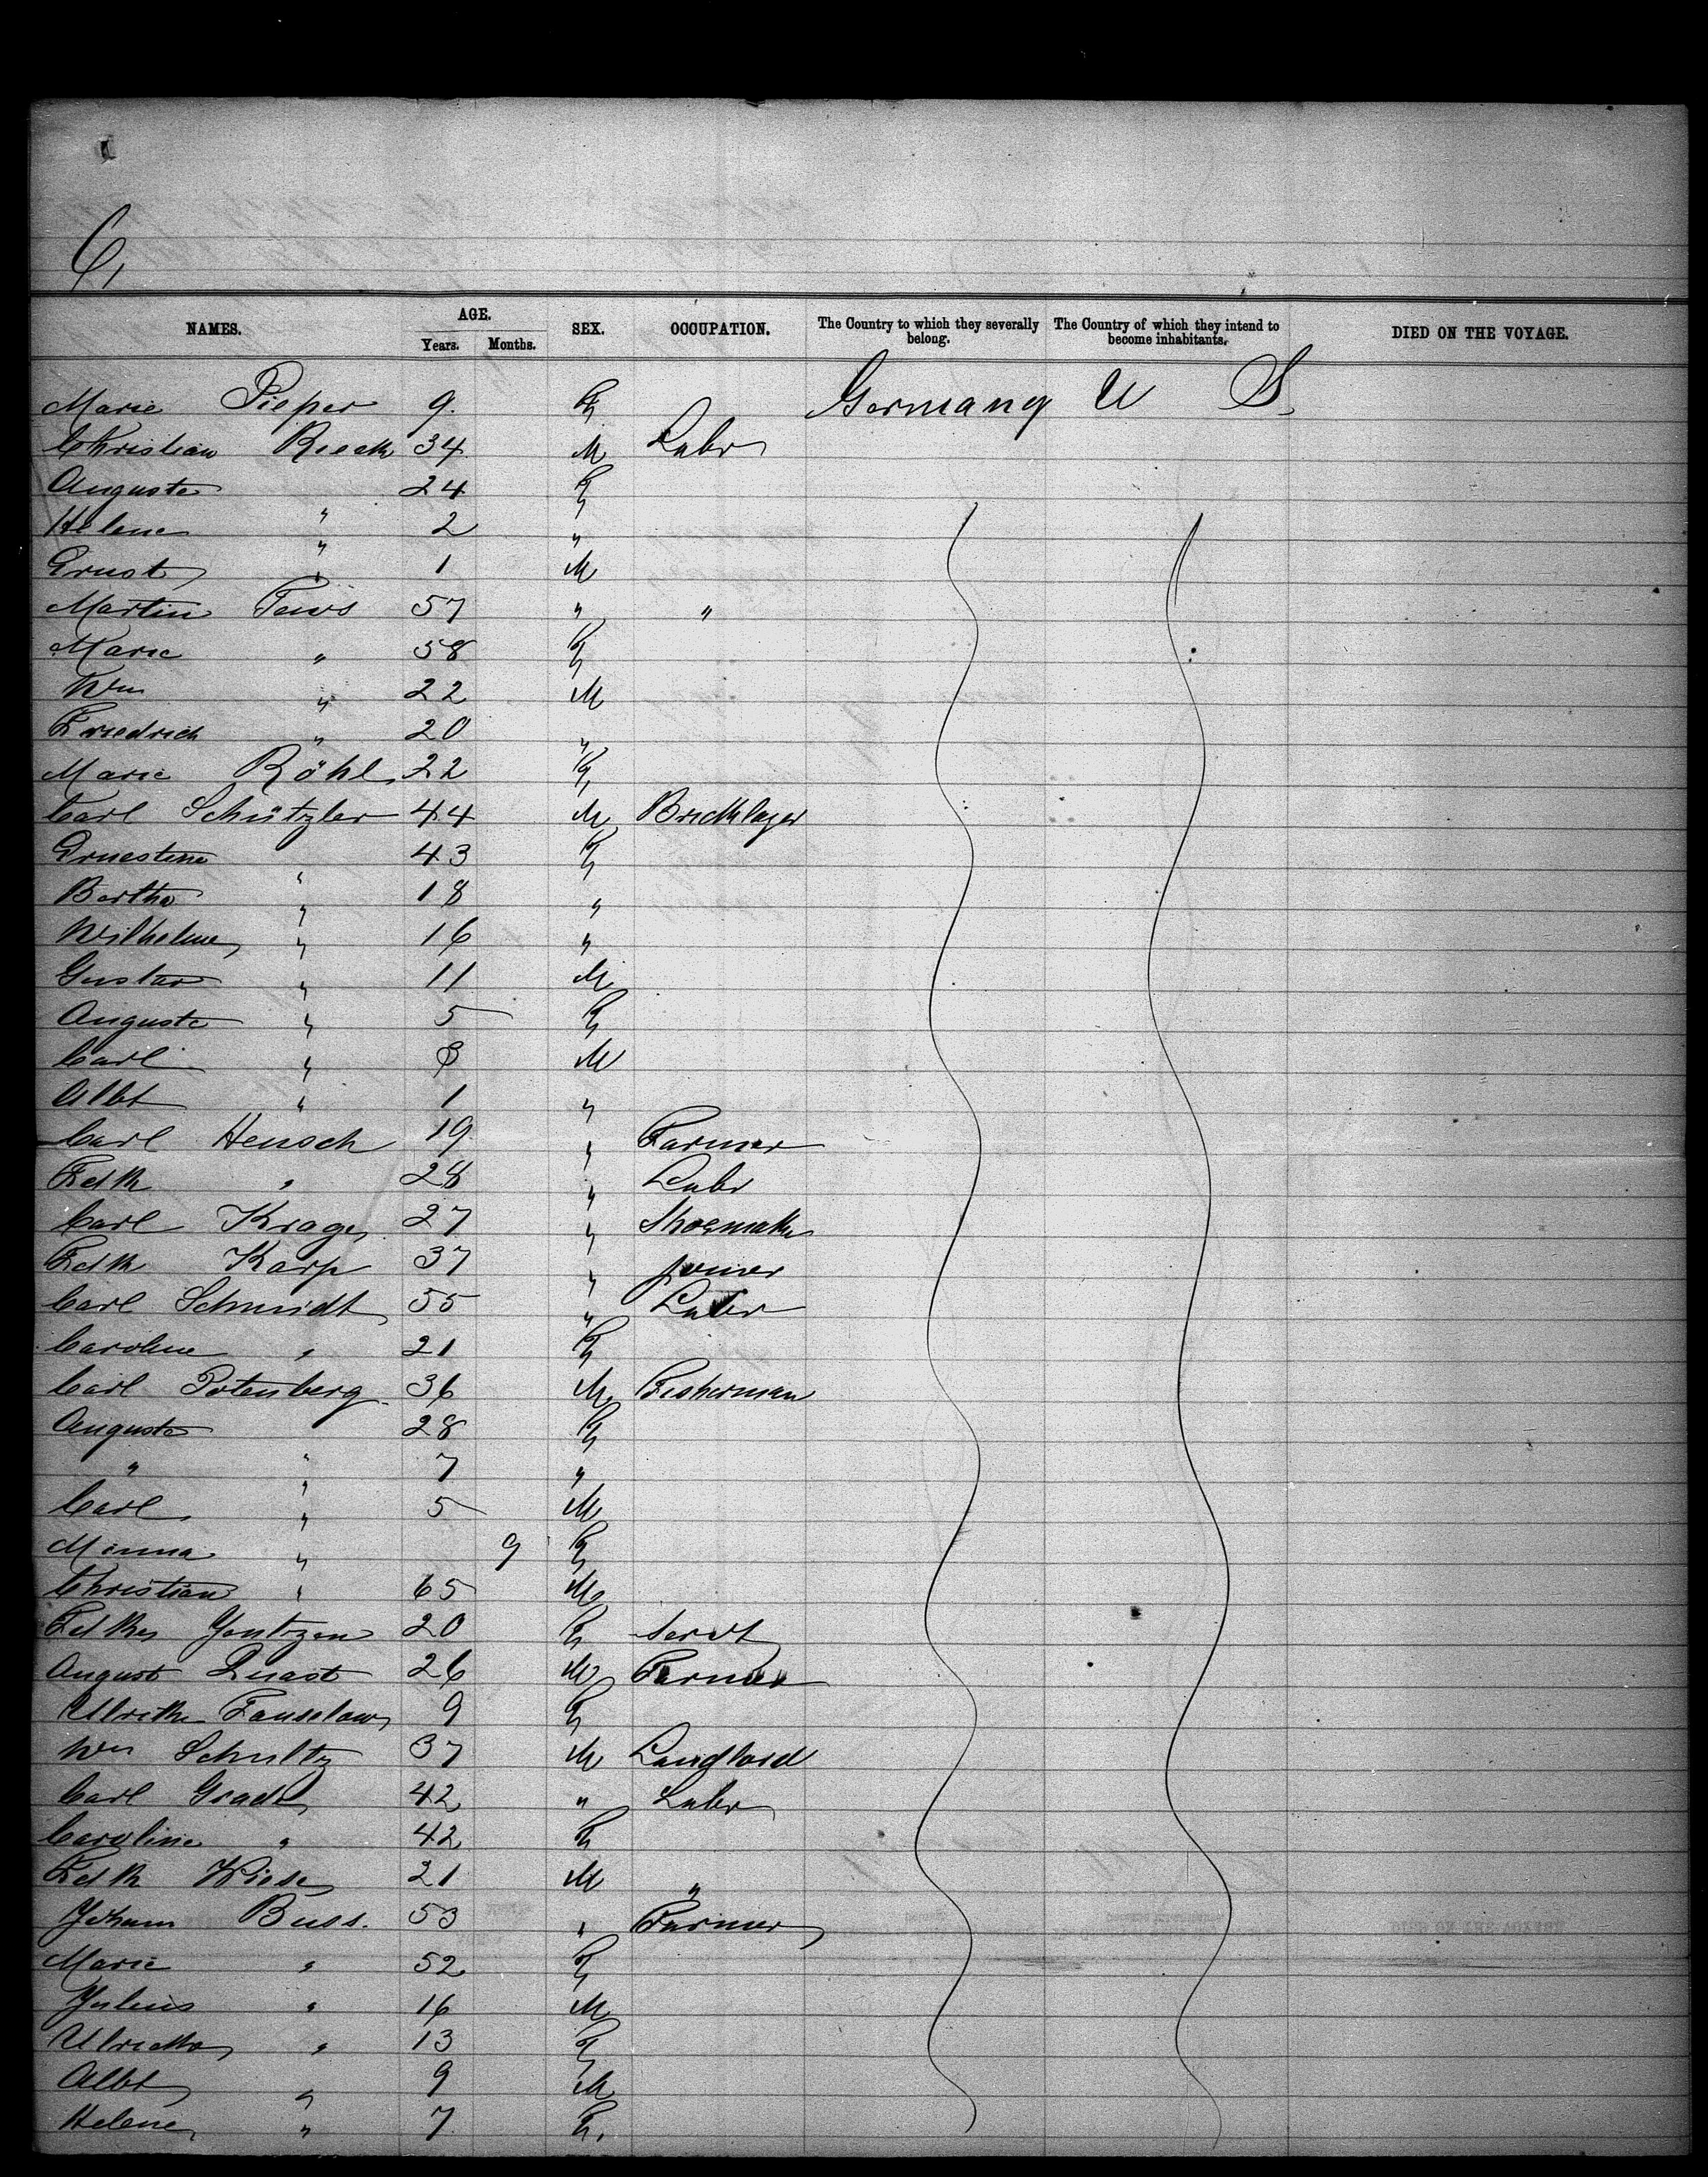 6,
NAMES. AGE. SEX. OCCUPATION. The Country to which they severally belong. The Country of which they intend to become inhabitants. DIED ON THE VOYAGE.
Years. Months.
Marie Pieper 9. F Germany U S.
Christian Rieck 34 M Labr
Auguste " 24 F
Helene " 2 "
Ernst " 1 M
Martin Tews 57 " "
Marie " 58 F
Wm " 22 M
Friedrich " 20 "
Marie Röhl 22 F
Carl Schützler 44 M Bricklayer
Ernestine " 43 F
Bertha " 18 "
Wilhelme " 16 "
Gustav " 11 M
Auguste " 5 F
Carl " 8 M
Albt " 1 "
Carl Hensch 19 " Farmer
Fdk " 28 " Labr
Carl Krage 27 " Shoemakr
Fdk Karp 37 " joiner
Carl Schmidt 55 " Labr
Caroline " 21 F
Carl Potenberg 36 M Fisherman
Auguste " 28 F
" " 7 "
Carl " 5 M
Minna " 9 F
Christian " 65 M
Fdke Jentzen 20 F Servt
August Quast 26 M Farmer
Ulrike Fanselow 9 F
Wm Schultz 37 M Landlord
Carl Grade 42 " Labr
Caroline " 42 F
Fdk Wiese 21 M "
Johann Buss. 53 " Farmer
Marie " 52 F
Julius " 16 M
Ulricke " 13 F
Albt " 9 M
Helene " 7 F.